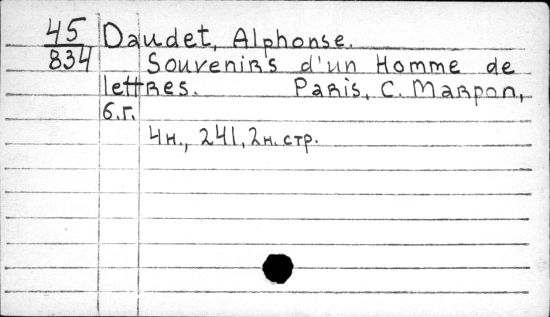 45 Daudet, Alphonse.
834 Souvenirs d'un Homme de
lettres. Paris, C. Marpon,
б.г.
4н., 241, 2н. стр.